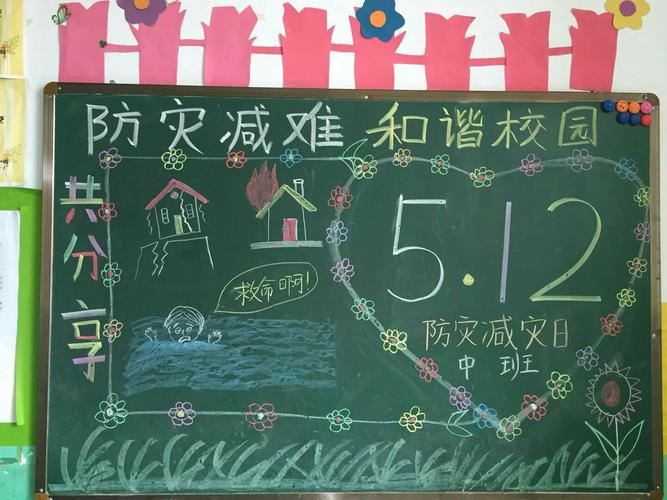 防灾减难 和谐校园
共分享
救命啊！
5.12
防灾减灾日
中班